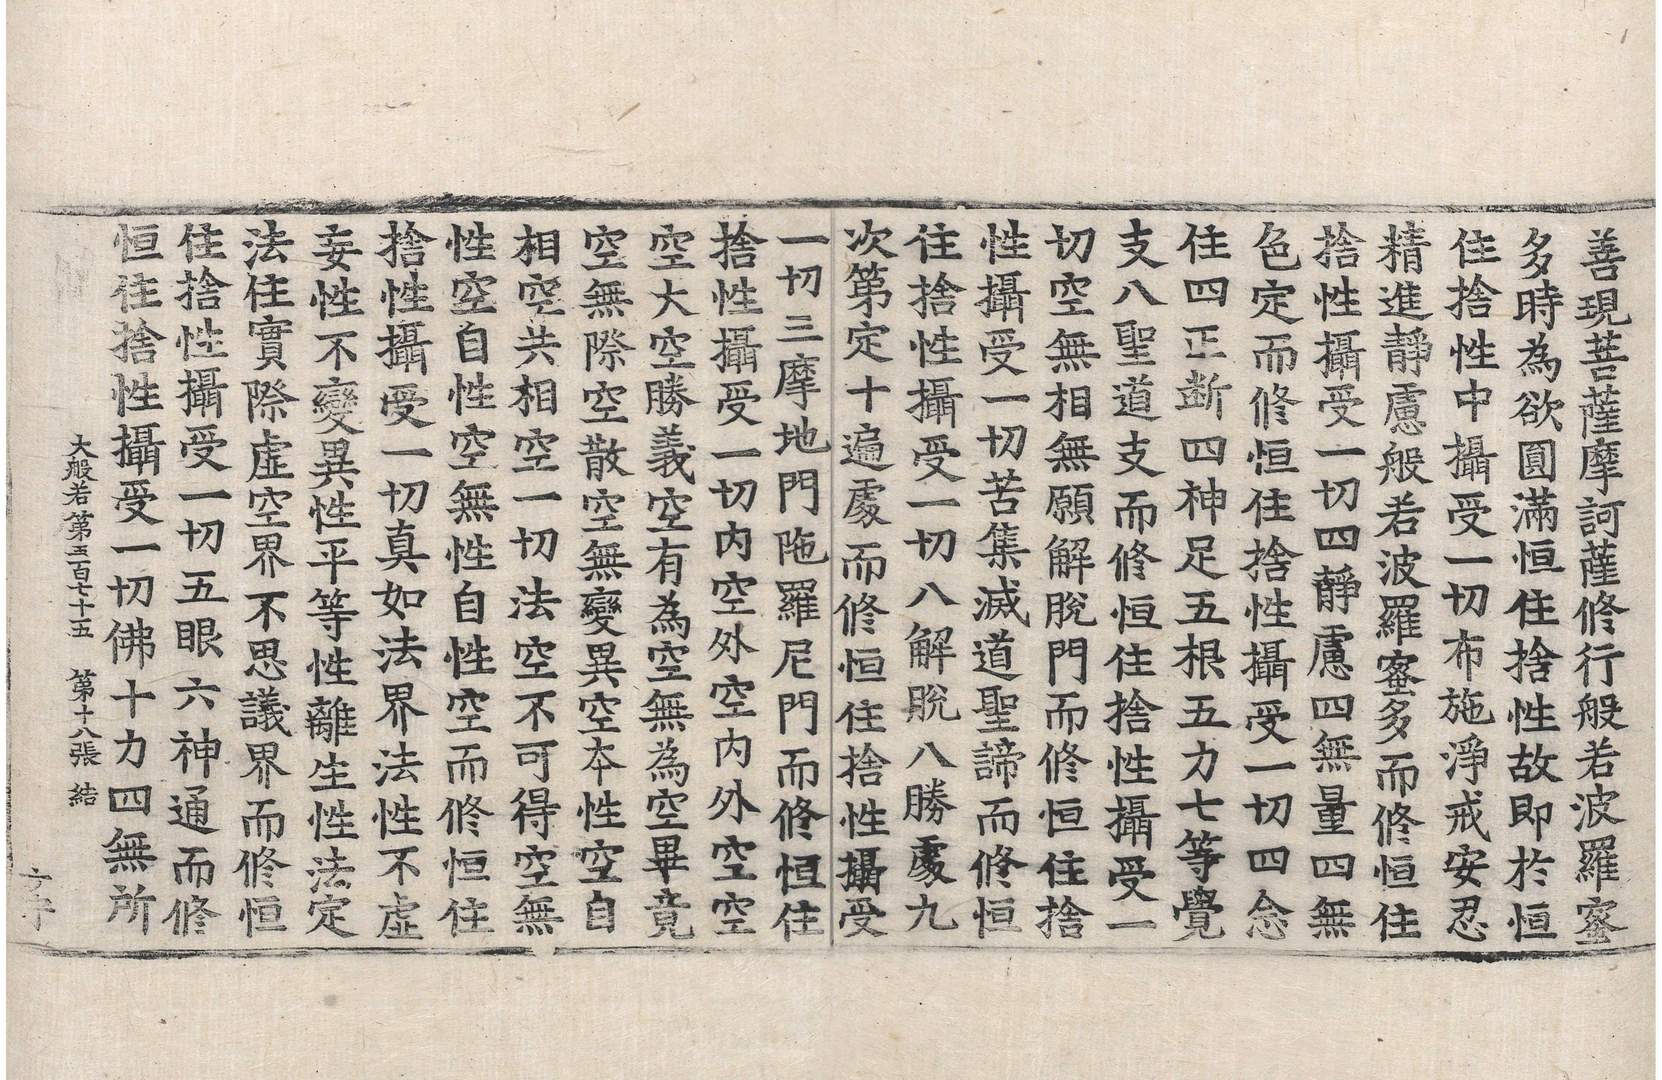 善現菩薩摩訶薩修行般若波羅蜜
多時為欲圓滿恒住捨性故即於恒
住捨性中攝受一切布施淨戒安忍
精進靜慮般若波羅蜜多而修恒住
捨性攝受一切四靜慮四無量四無
色定而修恒住捨性攝受一切四念
住四正断四神足五根五力七等覺
支八聖道支而修恒住捨性攝受一
切空無相無願解脫門而修恒住捨
性攝受一切苦集滅道聖諦而修恒
住捨性攝受一切八解脫八勝處九
次第定十遍處而修恒住捨性攝受
一切三摩地門陁羅尼門而修恒住
捨性攝受一切内空外空内外空空
空大空勝義空有為空無為空畢竟
空無際空散空無變異空本性空自
相空共相空一切法空不可得空無
性空自性空無性自性空而修恒住
捨性攝受一切真如法界法性不虛
妄性不變異性平等性離生性法定
法住實際虛空界不思議界而修恒
住捨性攝受一切五眼六神通而修
恒住捨性攝受一切佛十力四無所
大般若第五百七十五 第十八張 結